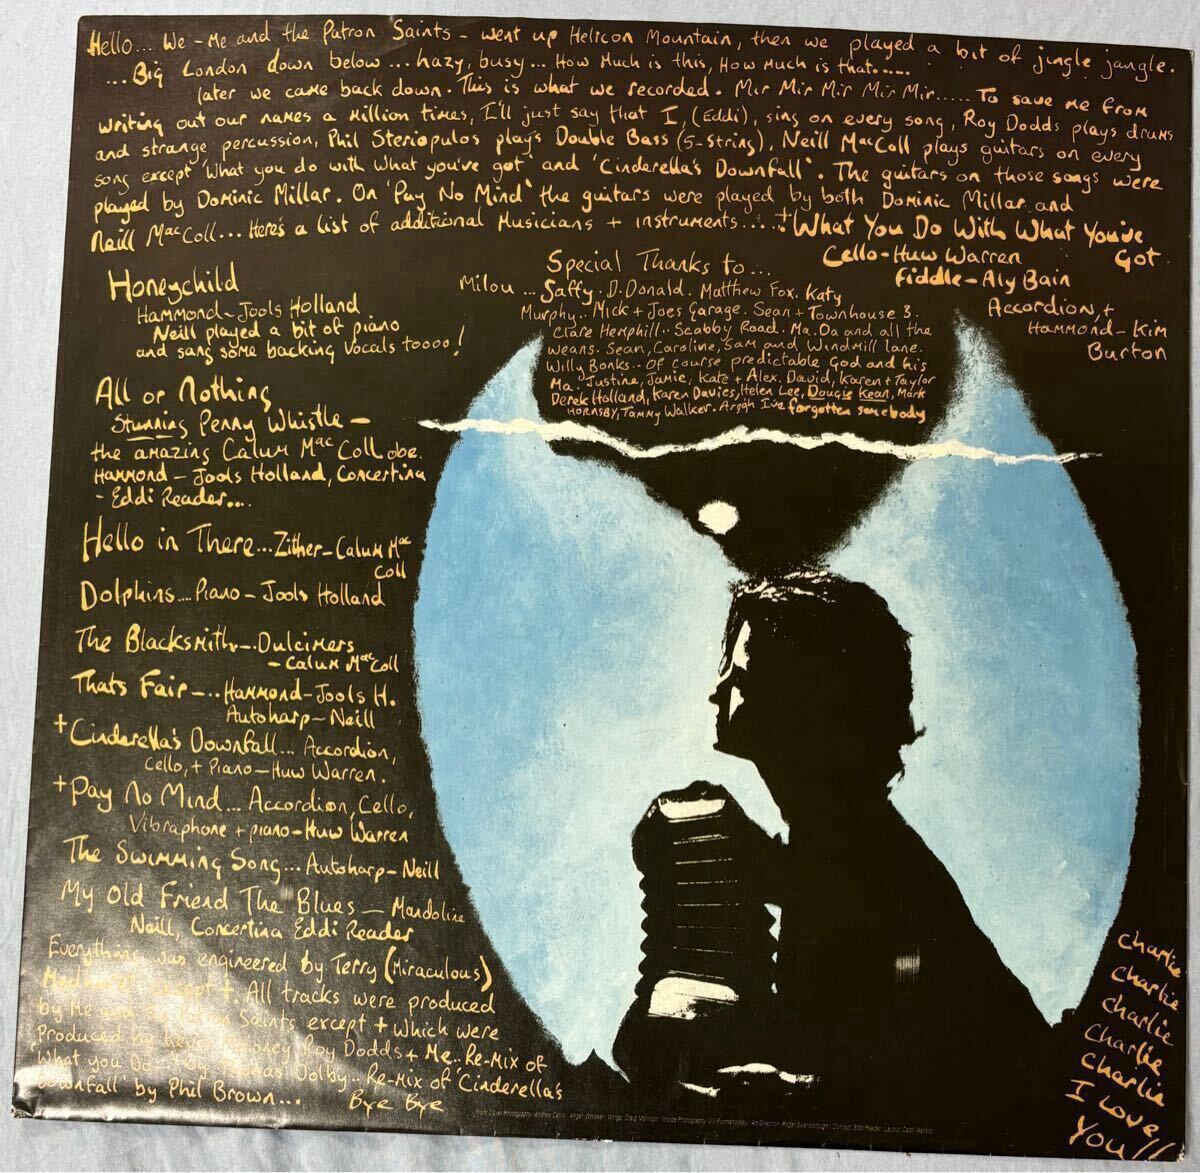 Hello... We - Me and the Patron Saints - went up Helicon Mountain, then we played a bit of jingle jangle.
...Big London down below... hazy, busy... How Much is this, How Much is that.....
later we came back down. This is what we recorded. Mir Mir Mir Mir Mir..... To save me from
writing out our names a million times, I'll just say that I, (Eddi), sing on every song, Roy Dodds plays drums
and strange percussion, Phil Steriopulos plays Double Bass (5-String), Neill MacColl plays guitars on every
song except 'What you do with what you've got' and 'Cinderella's Downfall'. The guitars on those songs were
played by Dominic Millar. On 'Pay No Mind' the guitars were played by both Dominic Millar and
Neill MacColl... Here's a list of additional Musicians + instruments.....
+ What You Do With What You've Got.
Cello - Huw Warren
Fiddle - Aly Bain
Accordion, +
Hammond - Kim
Burton
Honeychild
Hammond - Jools Holland
Neill played a bit of piano
and sang some backing vocals toooo!
All or Nothing
Stunning Penny Whistle -
the amazing Calum MacColl obe.
Hammond - Jools Holland, Concertina
- Eddi Reader....
Hello in There... Zither - Calum Mac
Coll
Dolphins.... Piano - Jools Holland
The Blacksmith.... Dulcimers
- Calum MacColl
Thats Fair -... Hammond - Jools H.
Autoharp - Neill
+ Cinderella's Downfall... Accordion,
Cello, + Piano - Huw Warren.
+ Pay No Mind... Accordion, Cello,
Vibraphone + piano - Huw Warren
The Swimming Song... Autoharp - Neill
My Old Friend The Blues - Mandoline
Neill, Concertina Eddi Reader
Everything was engineered by Terry (Miraculous)
except +. All tracks were produced
by Me and Saints except + which were
Produced by Roy Dodds + Me.. Re-Mix of
What you Do Dolby... Re-Mix of 'Cinderella's
Downfall by Phil Brown...
Bye Bye
Special Thanks to...
Milou... Saffy. D. Donald. Matthew Fox. Katy
Murphy.. Mick + Joes Garage. Sean + Townhouse 3.
Clare Hemphill.. Scabby Road. Ma. Da and all the
weans. Sean, Caroline, Sam and Windmill lane.
Willy Bonks.. Of course predictable God and his
Ma. Justine, Jamie, Kate + Alex. David, Karen + Taylor
Derek Holland, Karen Davies, Helen Lee, Dougie Kean, Mark
Hornsby, Tammy Walker. Argoh I've forgotten somebody
Charlie
Charlie
Charlie
Charlie
Charlie
I Love
You!!